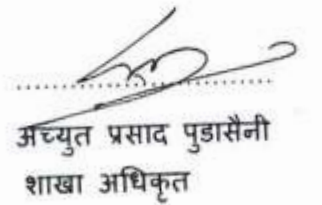 अच्युत प्रसाद पुडासैनी
शाखा अधिकृत